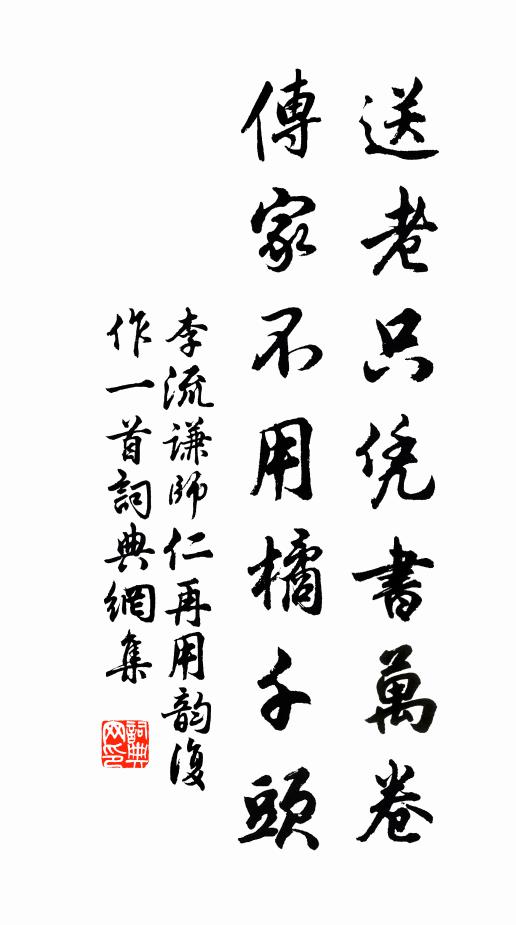 送老只凭書萬卷
傳家不用橘千頭
李流謙師仁再用韵復
作一首詞典網集
詞典
网印